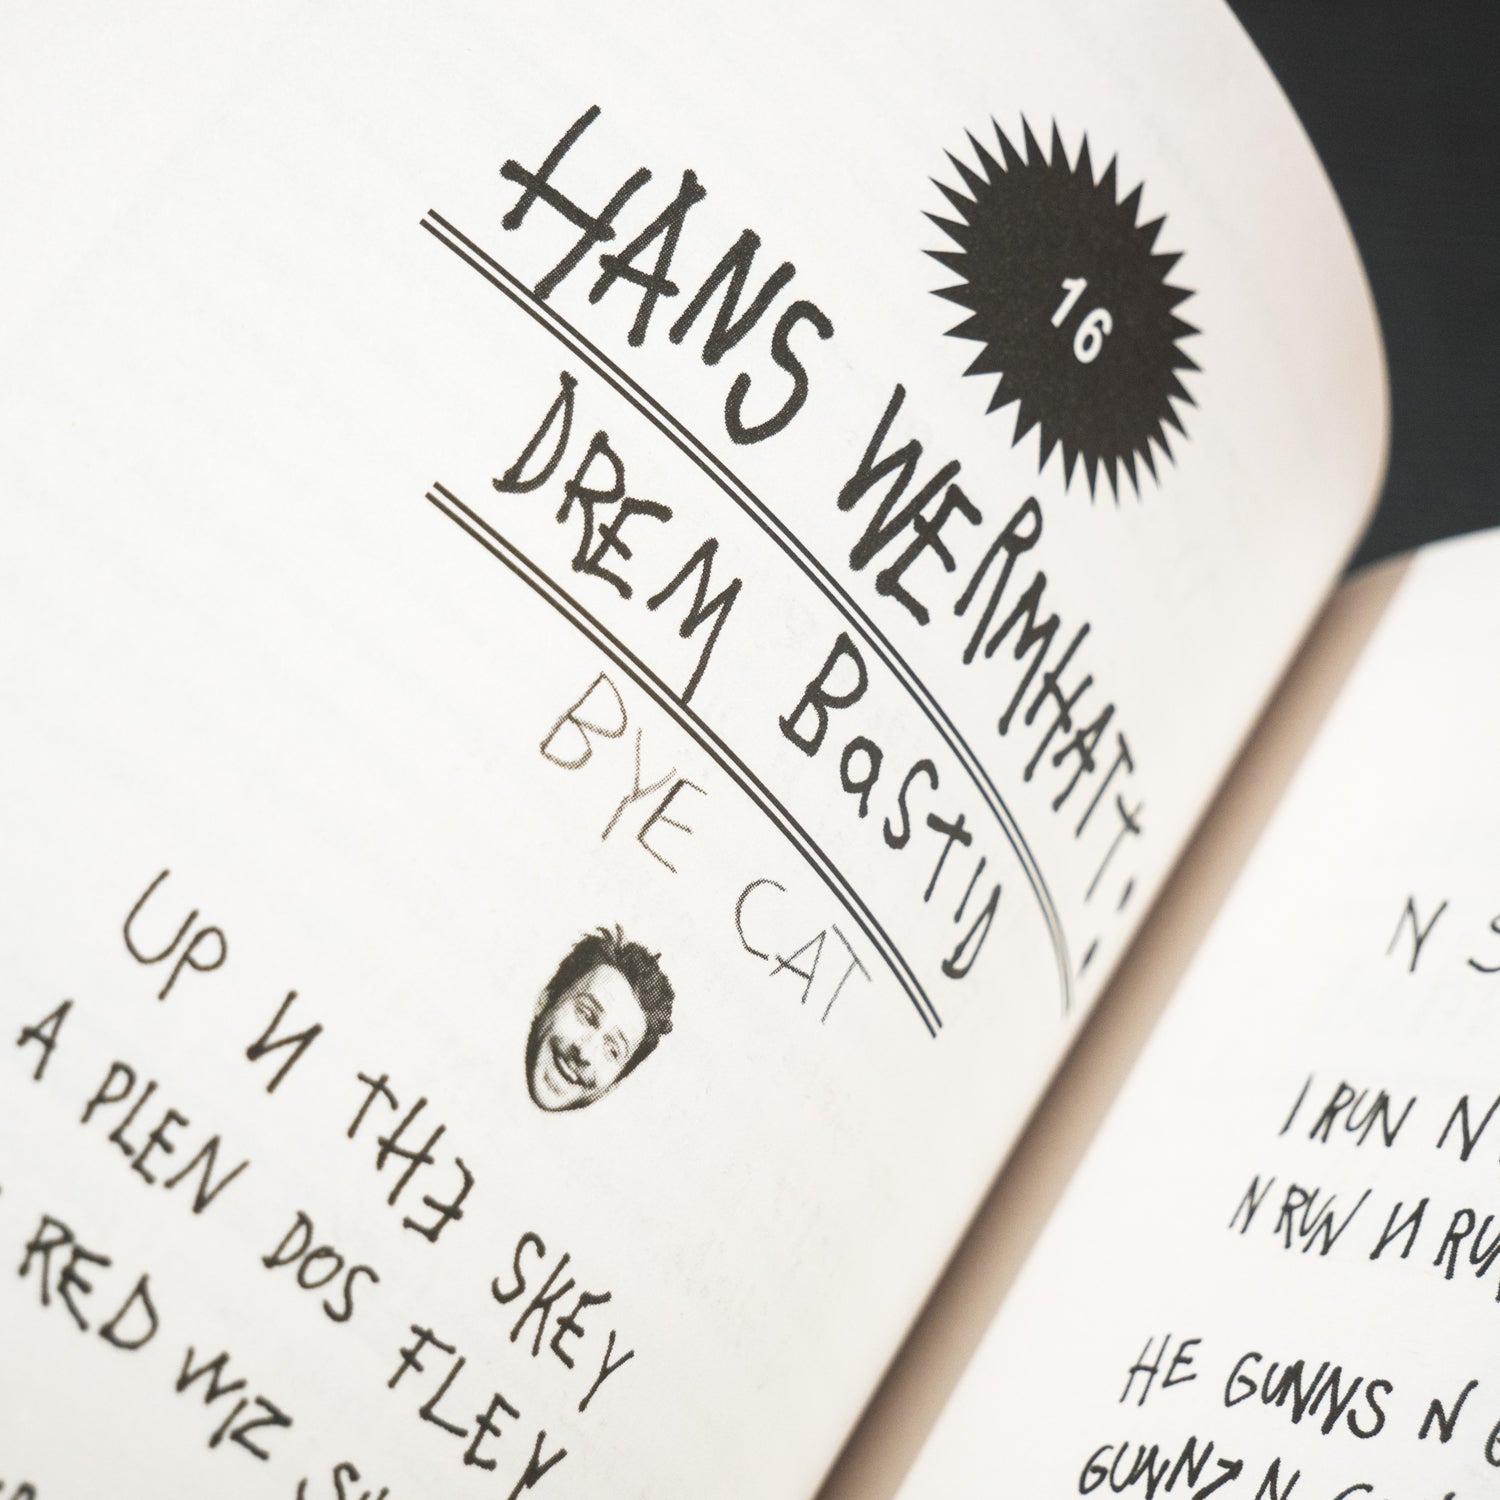 16
HANS WERMHATT
DREM BaSTID
BYE CAT
UP N THE SKEY
A PLEN DOS FLEY
RED WIZ
N S
I RUN N
N RUN N RUN
HE GUNNS N
GUNNZ N